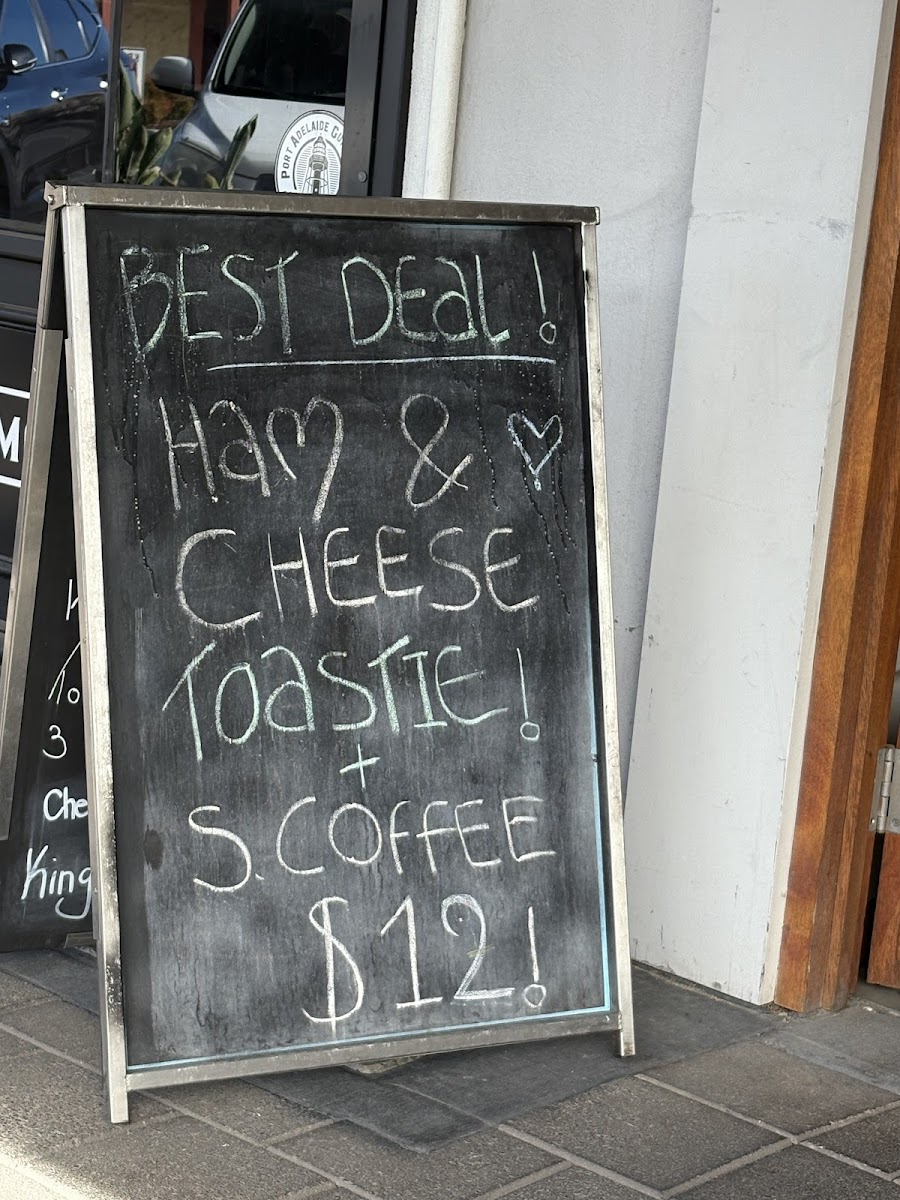 PORT ADELAIDE
BEST DEaL!
Ham &
CHEESE
ToaSTIE!
+
S.COFFEE
$12!
M
To
3
Che
King